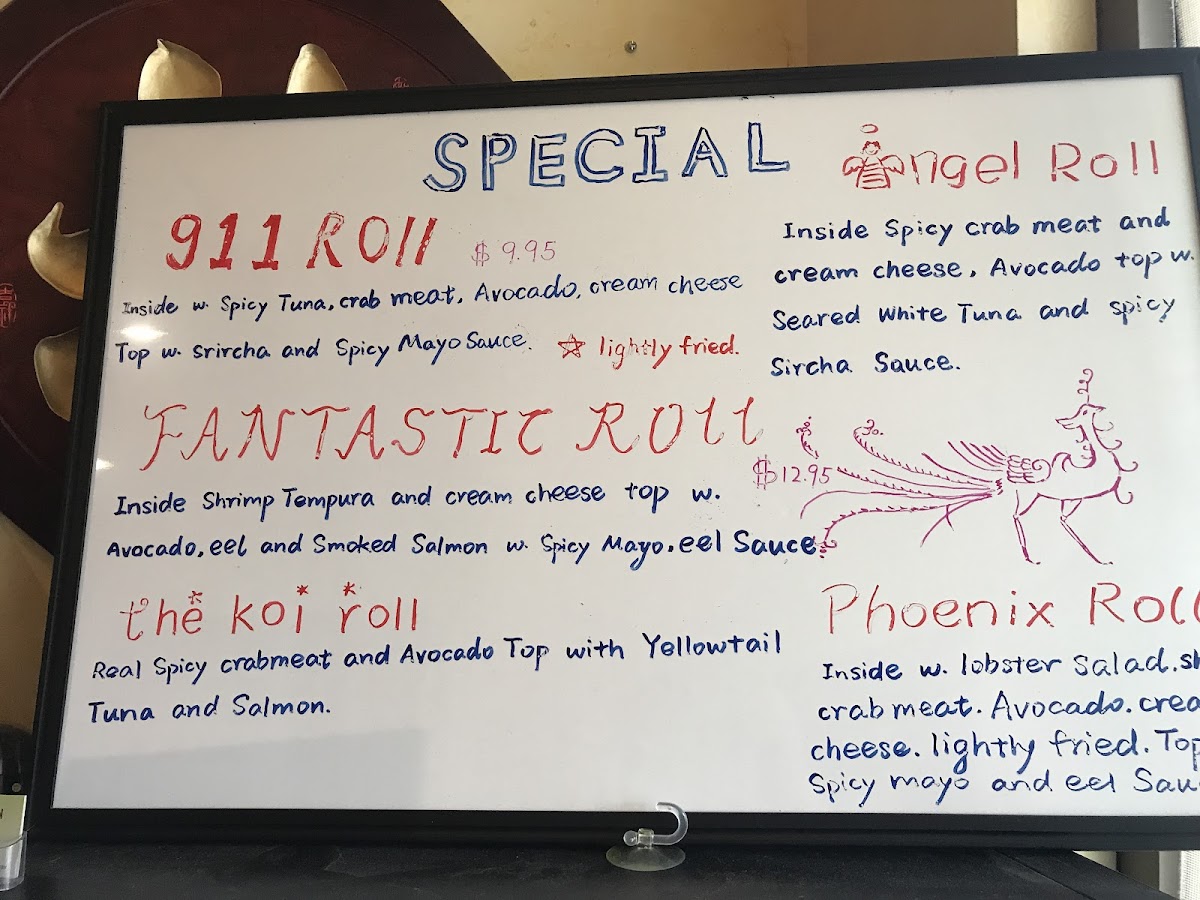 SPECIAL
911 ROll $ 9.95
Inside w. Spicy Tuna, crab meat, Avocado, cream cheese
Top w. srircha and Spicy Mayo Sauce. ☆ lightly fried.
FANTASTIC ROll
$12.95
Inside Shrimp Tempura and cream cheese top w.
Avocado, eel and Smoked Salmon w. Spicy Mayo. eel Sauce
the koi roll
Real Spicy crabmeat and Avocado Top with Yellowtail
Tuna and Salmon.
Angel Roll
Inside Spicy crab meat and
cream cheese, Avocado top w.
Seared White Tuna and spicy
Sircha Sauce.
Phoenix Roll
Inside w. lobster Salad.
crab meat. Avocado.
cheese. lightly fried. Top
Spicy mayo and eel